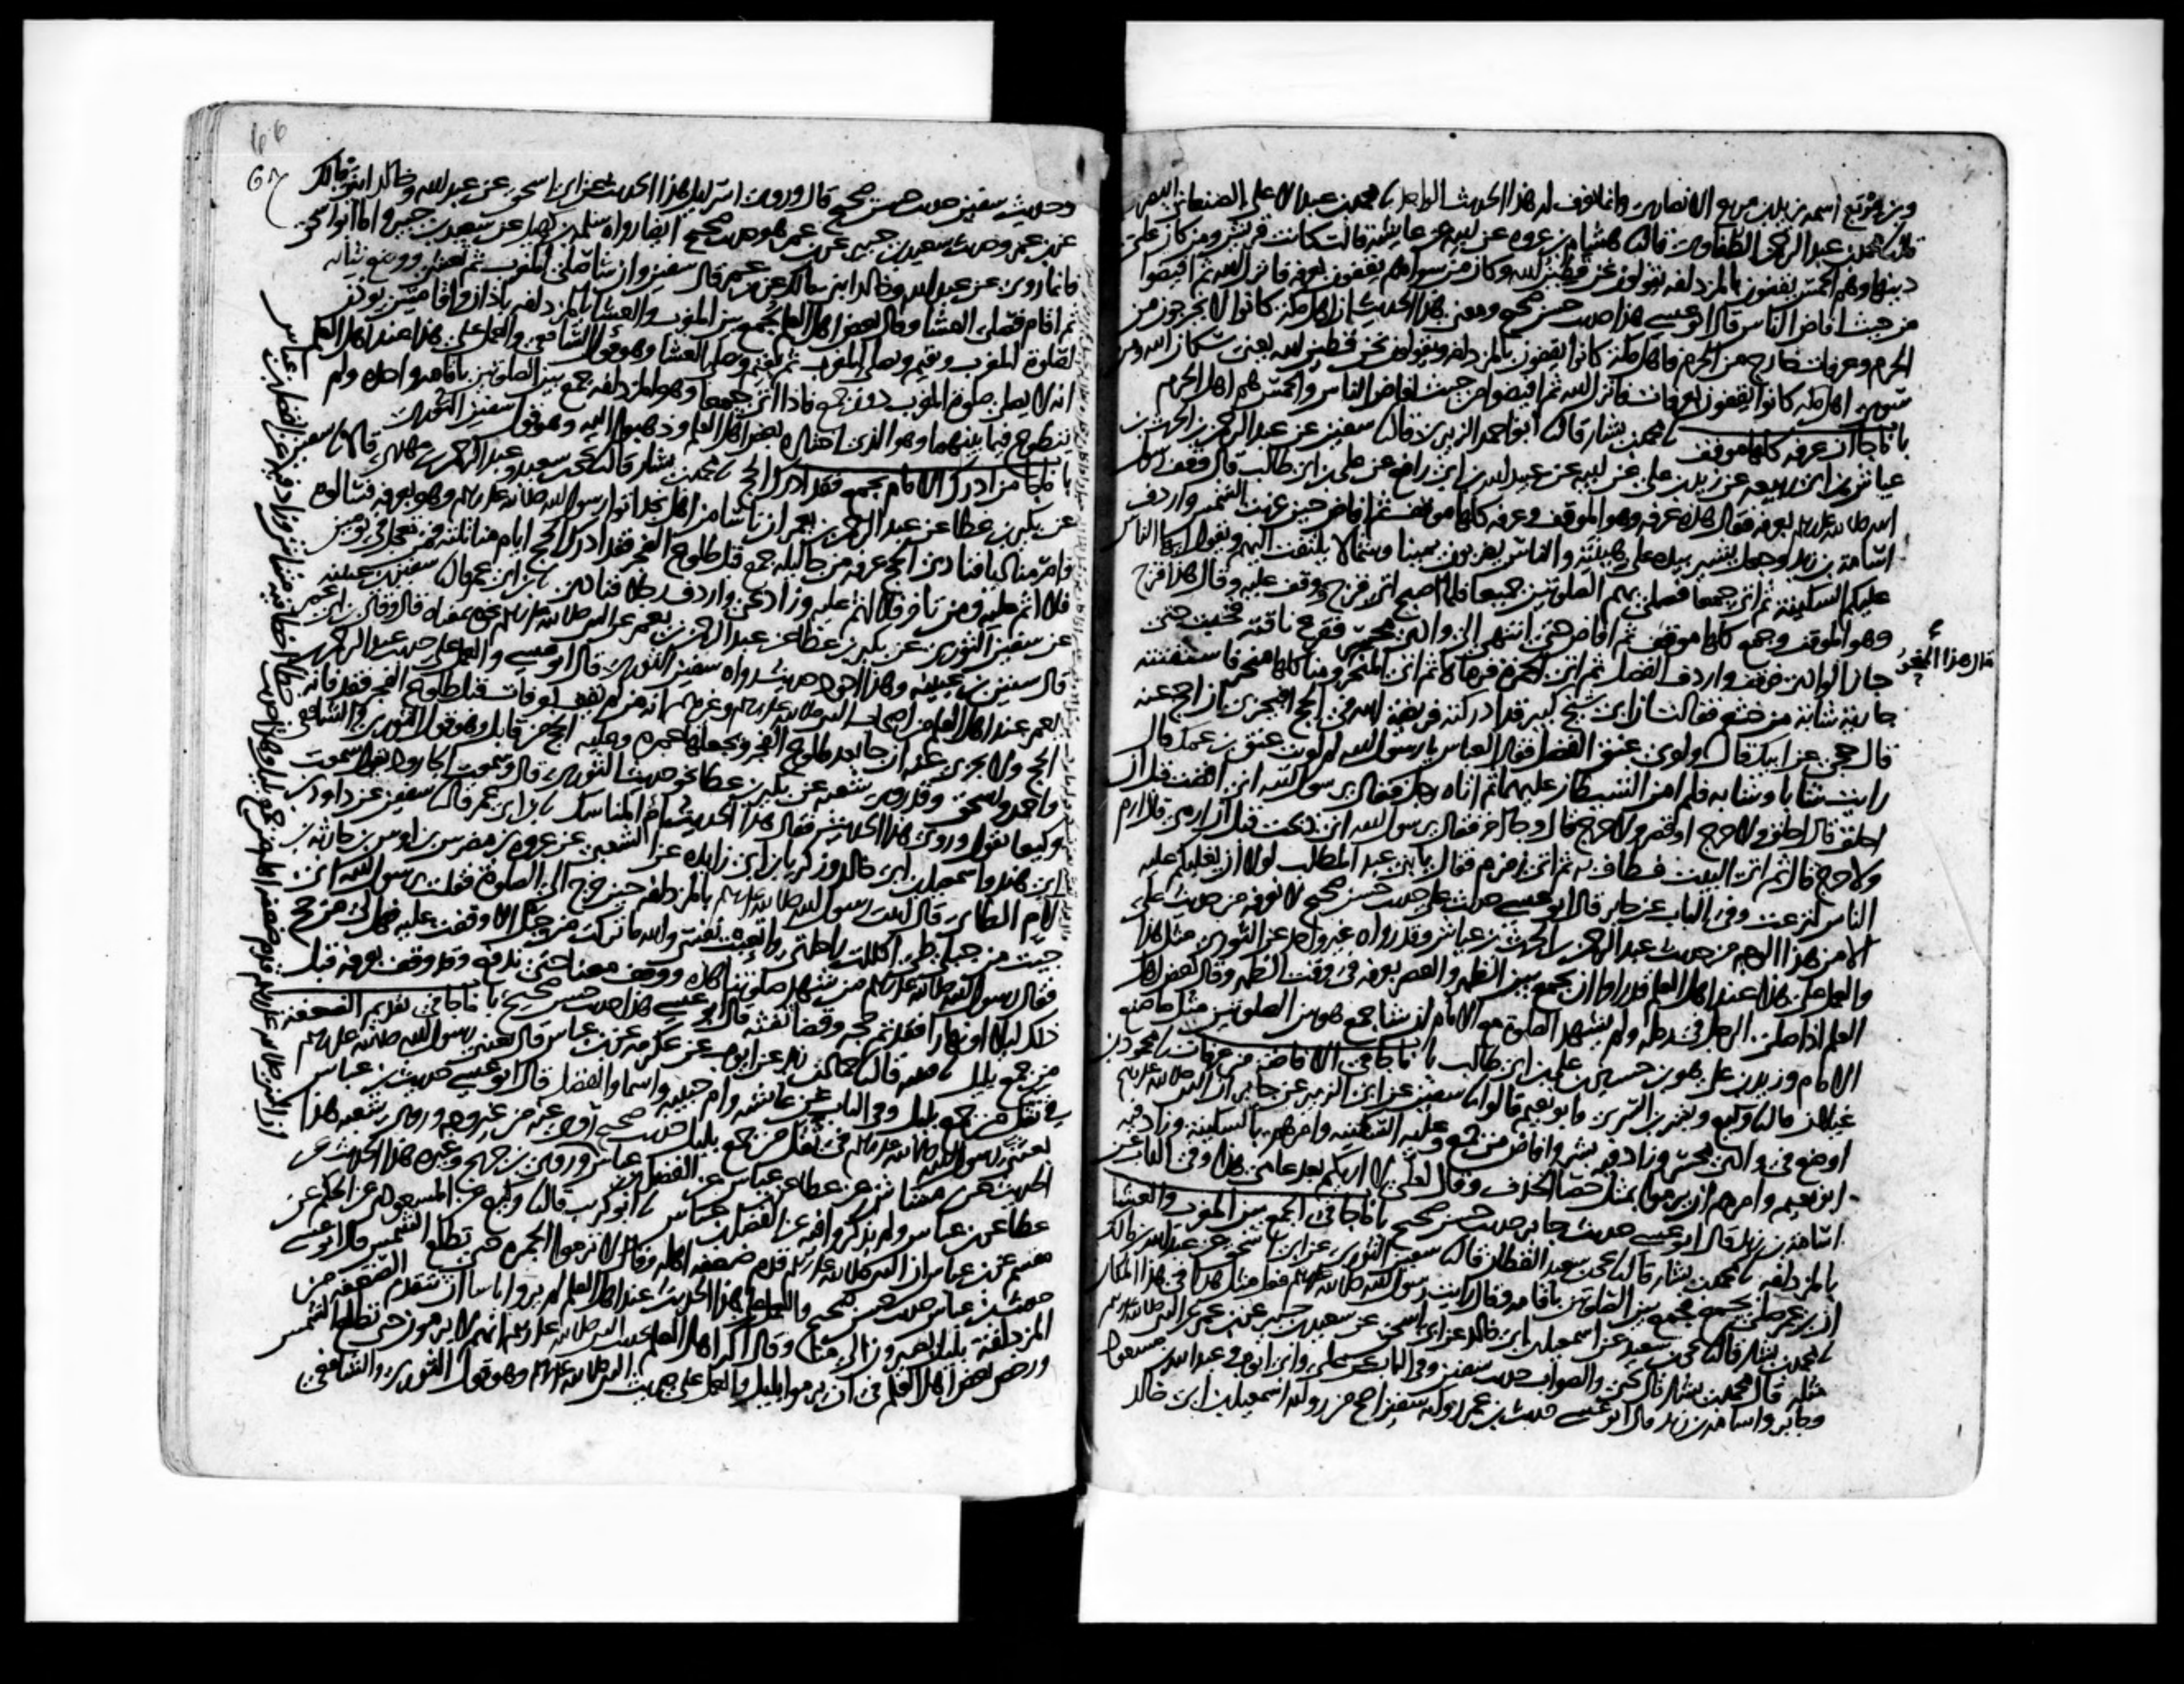 وبن مربع اسمه زيد بن مربع الانصاري وانما يعرف له هذا الحديث الواحد نا محمد بن عبد الاعلى الصنعاني البصري
قال نا محمد بن عبد الرحمن الطفاوي قال نا هشام بن عروه عن ابيه عن عايشه قالت كانت قريش ومن كان على
دينها وهم الحمس يقفون بالمزدلفه يقولون نحن قطين الله وكان من سواهم يقفون بعرفه فانزل الله ثم افيضوا
من حيث افاض الناس قال ابو عيسى هذا حديث حسن صحيح ومعنى هذا الحديث ان اهل مكه كانوا لا يخرجون من
الحرم وعرفات خارج من الحرم فاهل مكه كانوا يقفون بالمزدلفه ويقولون نحن قطين الله يعني سكان الله ومن
سوى اهل مكه كانوا يقفون بعرفات فانزل الله ثم افيضوا من حيث افاض الناس والحمس هم اهل الحرم
باب ما جا ان عرفه كلها موقف نا محمد بن بشار قال نا ابو احمد الزبيري قال نا سفين عن عبد الرحمن بن الحرث بن
عياش بن ابي ربيعه عن زيد بن علي عن ابيه عن عبيد الله بن ابي رافع عن علي بن ابي طالب قال وقف رسول
الله صلى الله عليه وسلم بعرفه فقال هذه عرفه وهو الموقف وعرفه كلها موقف ثم افاض حين غربت الشمس واردف
اسامه بن زيد وجعل يشير بيده على هينته والناس يضربون يمينا وشمالا يلتفت اليهم ويقول ايها الناس
عليكم السكينه ثم اتى جمعا فصلى بهم الصلوتين جميعا فلما اصبح اتى قزح ووقف عليه وقال هذا قزح
وهو الموقف وجمع كلها موقف ثم افاض حتى انتهى الى وادي محسر فقرع ناقته فخبت حتى
جاز الوادي فوقف واردف الفضل ثم اتى الجمره فرماها ثم اتى المنحر ومنا كلها منحر فاستفتته
جاريه شابه من خثعم فقالت ان ابي شيخ كبير قد ادركته فريضه الله في الحج افيجزي ان احج عنه
قال حجي عن ابيك قال ولوى عنق الفضل فقال العباس يا رسول الله لم لويت عنق بن عمك قال
رايت شابا وشابه فلم امن الشيطان عليهما ثم اتاه رجل فقال يرسول الله اني افضت قبل ان
احلق قال احلق ولا حرج او قصر ولا حرج قال وجا اخر فقال يرسول الله اني ذبحت قبل ان ارمي قال ارم
ولا حرج قال ثم اتى البيت فطاف به ثم اتى زمزم فقال يا بني عبد المطلب لولا ان يغلبكم عليه
الناس لنزعت وفي الباب عن جابر قال ابو عيسى حديث علي حديث حسن صحيح لا نعرفه من حديث علي
الا من هذا الوجه من حديث عبد الرحمن بن الحرث بن عياش وقد رواه غير واحد عن الثوري مثل هذا
والعمل على هذا عند اهل العلم قد راوا ان يجمع بين الظهر والعصر بعرفه في وقت الظهر وقال بعض اهل
العلم اذا صلى الرجل في رحله ولم يشهد الصلوه مع الامام ان شا جمع هو بين الصلوتين مثل ما صنع
الامام وزيد بن علي هو بن حسين بن علي بن ابي طالب باب ما جا في الافاضه من عرفات نا محمود بن
غيلان قال نا وكيع وبشر بن السري وابو نعيم قالوا نا سفين عن ابي الزبير عن جابر ان النبي صلى الله عليه وسلم
اوضع في وادي محسر وزاد فيه بشر وافاض من جمع وعليه السكينه وامرهم بالسكينه وزاد فيه
ابو نعيم وامرهم ان يرموا بمثل حصا الخذف وقال لعلي لا اراكم بعد عامي هذا وفي الباب عن
اسامه بن زيد قال ابو عيسى حديث جابر حديث حسن صحيح باب ما جا في الجمع بين المغرب والعشا
بالمزدلفه نا محمد بن بشار قال نا يحيى بن سعيد القطان قال نا سفين الثوري عن ابي اسحق عن عبد الله بن مالك
ان بن عمر صلى بجمع فجمع بين الصلوتين باقامه وقال رايت رسول الله صلى الله عليه وسلم فعل مثل هذا في هذا المكان
نا محمد بن بشار قال نا يحيى بن سعيد عن اسمعيل بن ابي خالد عن ابي اسحق عن سعيد بن جبير عن بن عمر عن النبي صلى الله عليه وسلم
مثله قال محمد بن بشار قال يحيى والصواب حديث سفين وفي الباب عن علي وابي ايوب وعبد الله بن مسعود
وجابر واسامه بن زيد قال ابو عيسى حديث بن عمر رواية سفين اصح من رواية اسمعيل بن ابي خالد
قال هذا
66
67
وحديث سفين حديث حسن صحيح قال وروى اسرايل هذا الحديث عن ابي اسحق عن عبد الله وخالد ابني مالك
عن بن عمر وحديث سعيد بن جبير عن بن عمر هو حديث صحيح ايضا رواه سلمه بن كهيل عن سعيد بن جبير واما ابو اسحق
فانما روى عن عبد الله وخالد ابني مالك عن بن عمر قال سفين وان شا صلى المغرب ثم تعشى ووضع ثيابه
ثم اقام فصلى العشا وقال بعض اهل العلم يجمع بين المغرب والعشا بالمزدلفه باذان واقامتين يوذن
لصلوة المغرب ويقيم ويصلي المغرب ثم يقيم ويصلي العشا وهو قول الشافعي والعمل على هذا عند اهل العلم
انه لا يصلي صلوة المغرب دون جمع فاذا اتى جمعا وهو المزدلفه جمع بين الصلوتين باقامه واحده ولم
يتطوع فيما بينهما وهو الذي اختاره بعض اهل العلم وذهبوا اليه وهو قول سفين الثوري
باب ما جا من ادرك الامام بجمع فقد ادرك الحج نا محمد بن بشار قال نا يحيى بن سعيد وعبد الرحمن بن مهدي قالا نا سفين
عن بكير بن عطا عن عبد الرحمن بن يعمر ان ناسا من اهل نجد اتوا رسول الله صلى الله عليه وسلم وهو بعرفه فسالوه
فامر مناديا فنادى الحج عرفه من جا ليله جمع قبل طلوع الفجر فقد ادرك الحج ايام منا ثلثه فمن تعجل في يومين
فلا اثم عليه ومن تاخر فلا اثم عليه وزاد يحيى واردف رجلا فنادى نا بن ابي عمر قال نا سفين بن عيينه
عن سفين الثوري عن بكير بن عطا عن عبد الرحمن بن يعمر عن النبي صلى الله عليه وسلم نحوه بمعناه قال وقال بن ابي عمر
قال سفين بن عيينه وهذا اجود حديث رواه سفين الثوري قال ابو عيسى والعمل على حديث عبد الرحمن بن
يعمر عند اهل العلم من اصحاب النبي صلى الله عليه وسلم وغيرهم انه من لم يقف بعرفات قبل طلوع الفجر فقد فاته
الحج ولا يجزي عنه ان جا بعد طلوع الفجر ويجعلها عمره وعليه الحج من قابل وهو قول الثوري والشافعي
واحمد واسحق وقد روى شعبه عن بكير بن عطا نحو حديث الثوري قال وسمعت الجارود يقول سمعت
وكيعا يقول وروى هذا الحديث فقال هذا الحديث ام المناسك نا بن ابي عمر قال نا سفين عن داود بن
ابي هند واسمعيل بن ابي خالد وزكريا بن ابي زايده عن الشعبي عن عروه بن مضرس بن اوس بن حارثه بن
لام الطائي قال اتيت رسول الله صلى الله عليه وسلم بالمزدلفه حين خرج الى الصلوة فقلت يرسول الله اني
جيت من جبلي طي اكللت راحلتي واتعبت نفسي والله ما تركت من جبل الا وقفت عليه فهل لي من حج
فقال رسول الله صلى الله عليه وسلم من شهد صلوتنا هذه ووقف معنا حتى ندفع وقد وقف بعرفه قبل
ذلك ليلا او نهارا فقد تم حجه وقضا تفثه قال ابو عيسى هذا حديث حسن صحيح باب ما جا في تقديم الضعفه
من جمع بليل نا قتيبه قال نا حماد بن زيد عن ايوب عن عكرمه عن بن عباس قال بعثني رسول الله صلى الله عليه وسلم
في ثقل من جمع بليل وفي الباب عن عايشه وام حبيبه واسما والفضل قال ابو عيسى حديث بن عباس
بعثني رسول الله صلى الله عليه وسلم في ثقل من جمع بليل حديث صحيح روي عنه من غير وجه وروى شعبه هذا
الحديث عن مشاش عن عطا عن بن عباس عن الفضل بن عباس وروى بن جريج وغيره هذا الحديث عن
عطا عن بن عباس ولم يذكروا فيه عن الفضل بن عباس نا ابو كريب قال نا وكيع عن المسعودي عن الحكم عن
مقسم عن بن عباس ان النبي صلى الله عليه وسلم قدم ضعفه اهله وقال لا ترموا الجمره حتى تطلع الشمس قال ابو عيسى
حديث بن عباس حديث حسن صحيح والعمل على هذا الحديث عند اهل العلم لم يروا باسا ان يتقدم الضعفه من
المزدلفة بليل يصيرون الى منا وقال اكثر اهل العلم بحديث النبي صلى الله عليه وسلم انهم لا يرمون حتى تطلع الشمس
ورخص بعض اهل العلم في ان يرموا بليل والعمل على حديث النبي صلى الله عليه وسلم وهو قول الثوري والشافعي